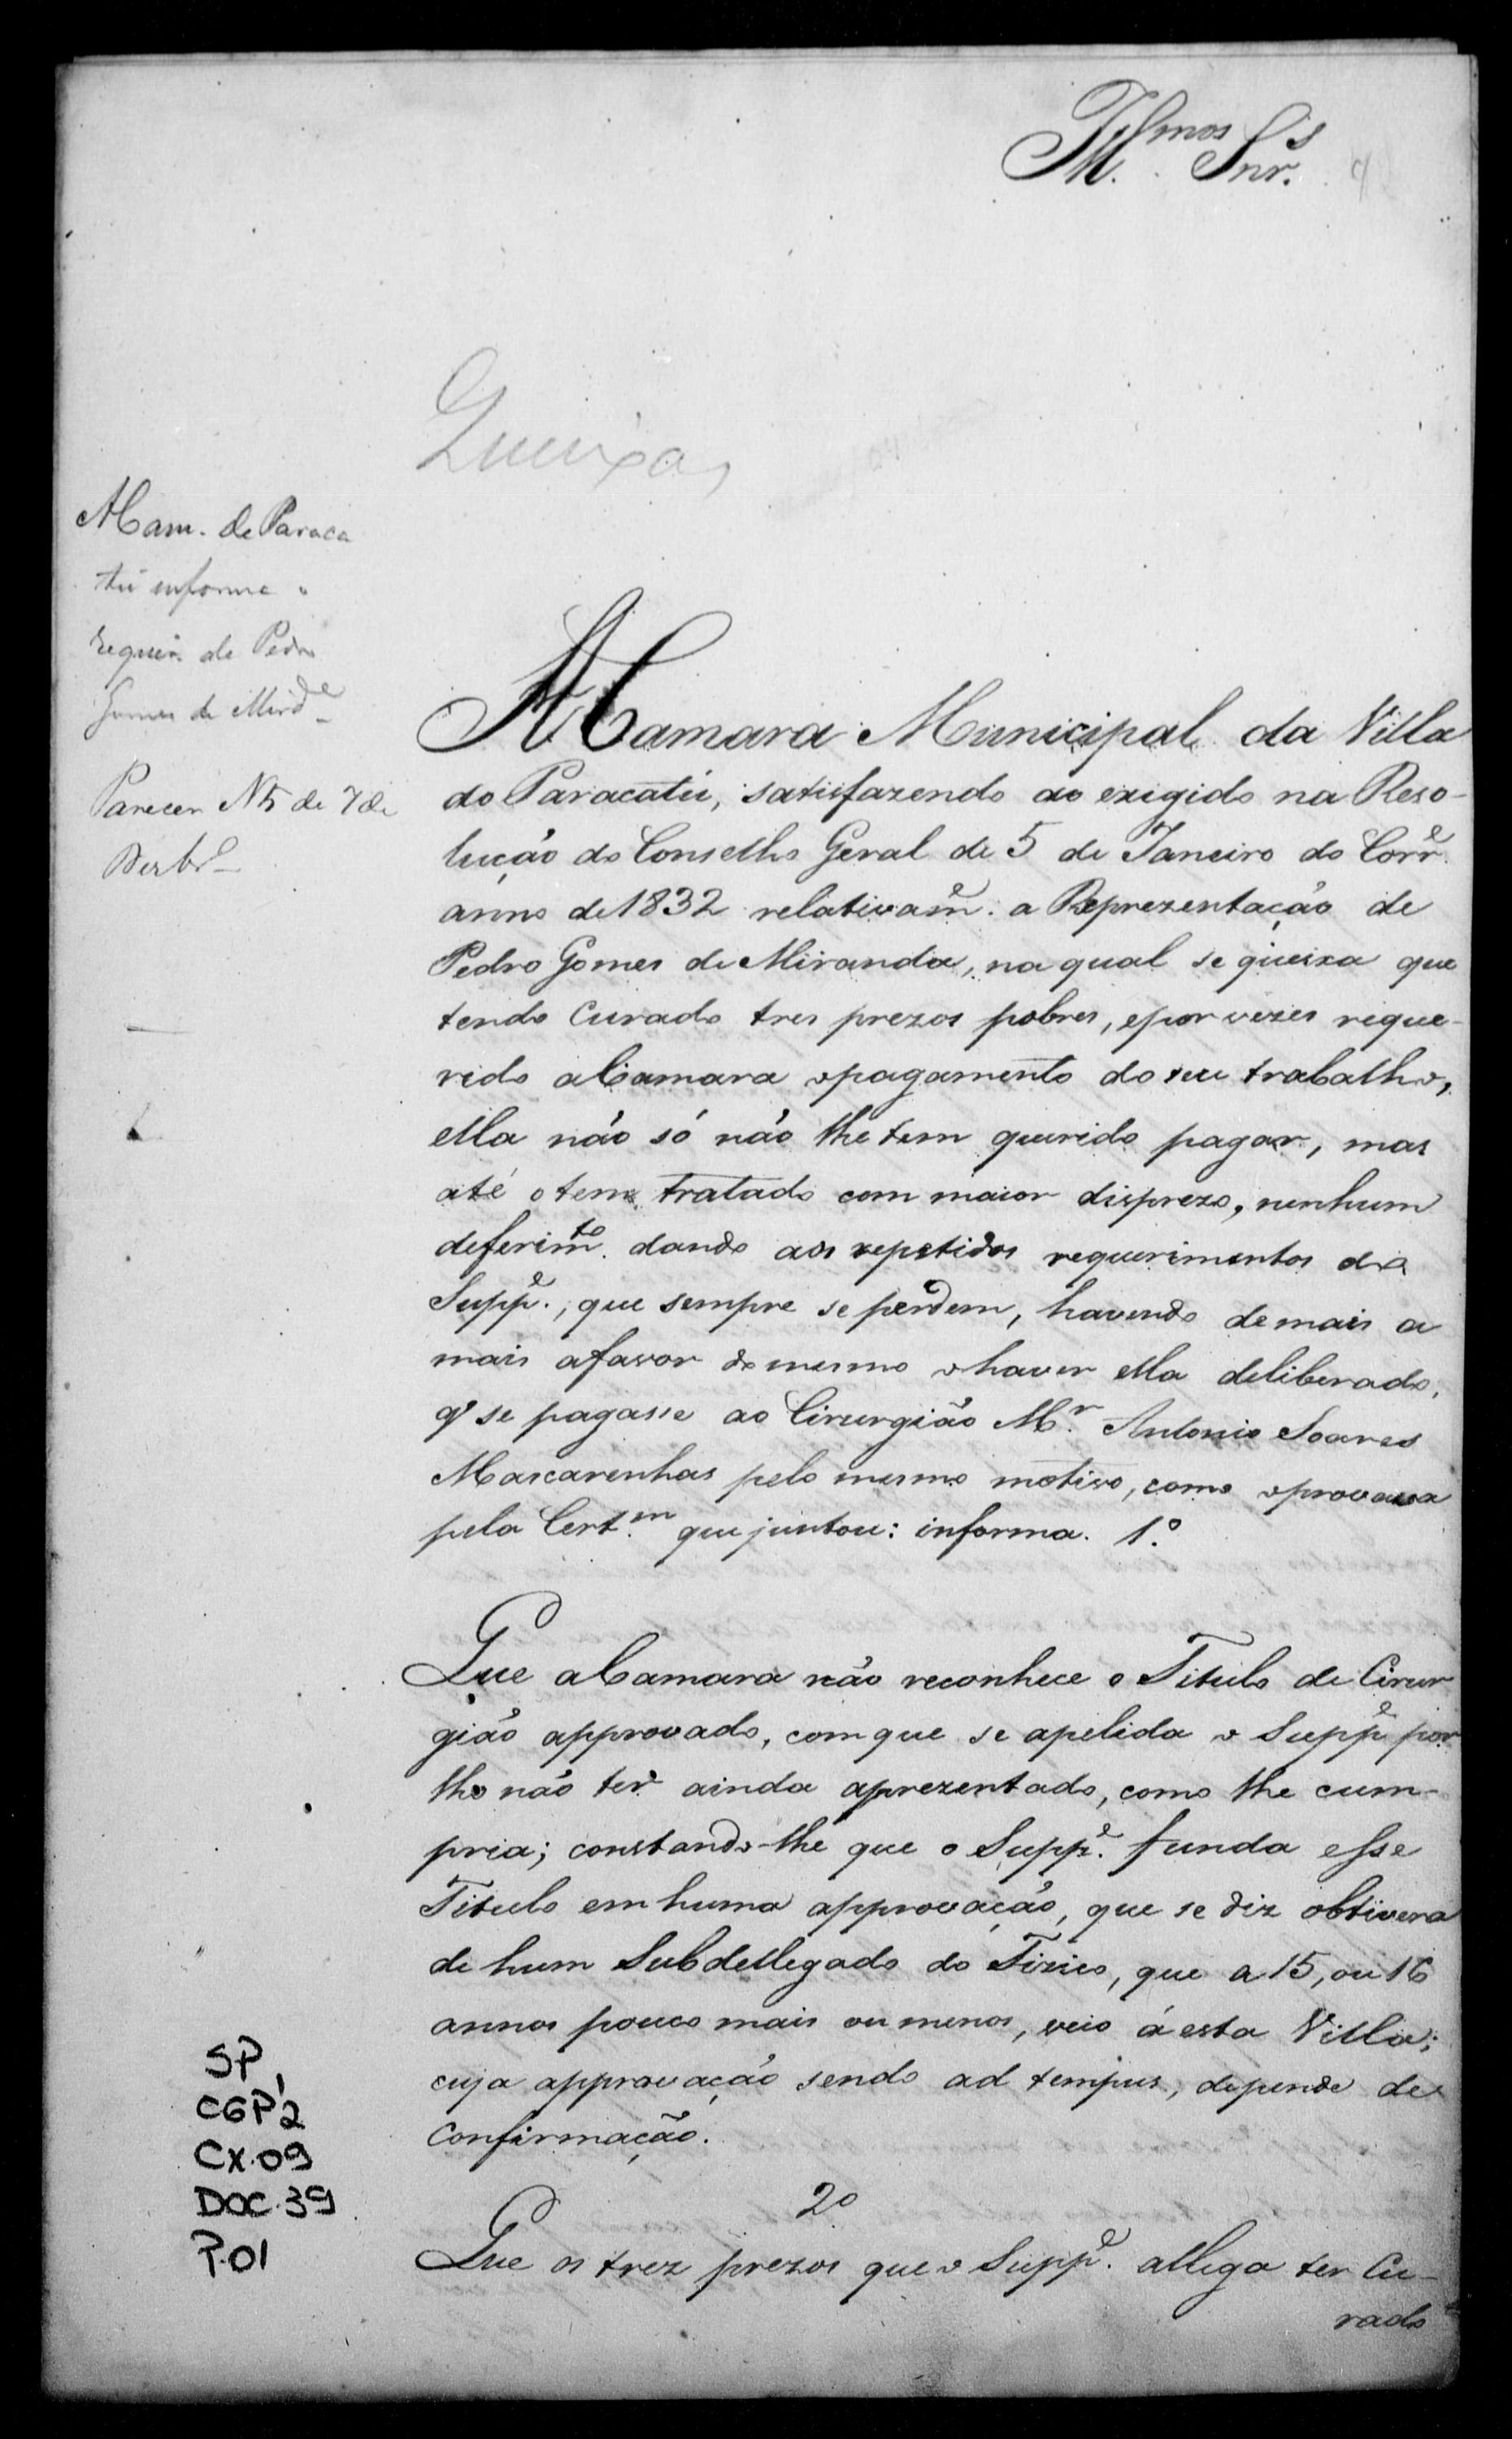 Illmos Snr.s
Queixas
ACam. de Paraca
tú informe o
requer. de Pedro
Gomes de Mird.e
Parecer N5 de 7 de
Dezbr.o
A Camara Municipal da Villa
do Paracatú, satisfazendo ao exigido na Reso-
lução do Conselho Geral de 5 de Janeiro do Corr.e
anno de 1832 relativam.e a Reprezentação de
Pedro Gomes de Miranda, na qual se queixa que
tendo Curado tres prezos pobres, e por vezes reque-
rido a Camara o pagamento do seu trabalho,
ella não só não lhe tem querido pagar, mas
até o tem tratado com maior disprezo, nenhum
deferim.to dando aos repetidos requerimentos do
Supp.e, que sempre se perdem, havendo de mais a
mais a favor do mesmo o haver ella deliberado,
q' se pagasse ao Cirurgião M.r Antonio Soares
Mascarenhas pelo mesmo motivo, como o provava
pela Cert.m que juntou: informa. 1.º
Que a Camara não reconhece o Titulo de Cirur
gião approvado, com que se apelida o Supp.e por
lho não ter ainda aprezentado, como lhe cum-
pria; constando-lhe que o Supp.e funda esse
Titulo em huma approvação, que se diz obtivera
de hum Subdellegado do Fizico, que a 15, ou 16
annos pouco mais ou menos, veio á esta Villa;
cuja approvação sendo ad tempus, depende de
Confirmação.
2º
Que os trez prezos que o Supp.e allega ter Cu-
rado
SP,
CGP'2
CX.09
DOC.39
P.01